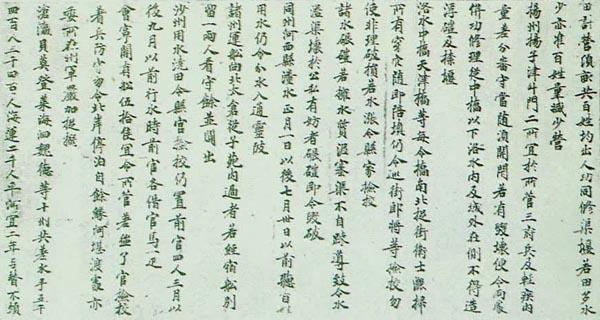 田計營頃畝共百姓均出人功同修渠堰若田多水
少亦准百姓量減少營
揚州揚子津斗門二所宜於所管三府兵及輕疾內
量差分番守當隨須開閉若有毀壞便令兩處
併功修理從中橋以下洛水內及城外在側不得造
浮磑及捺堰
洛水中橋天津橋等每令橋南北捉街衛士灑掃
所有穿穴隨即陪填仍令巡街郎將等檢校勿
使非理破損若水漲令縣家檢校
諸水碾磑若擁水質泥塞渠不自疏導致令水
溢渠壞於公私有妨者碾磑即令毀破
同州河西縣瀵水正月一日以後七月卅日以前聽百姓
用水仍令分水入通靈陂
諸州運船向北太倉從子苑內過者若經宿船別
留一兩人看守餘並闕出
沙州用水澆田令縣官檢校仍置前官四人三月以
後九月以前行水時前官各借官馬一疋
會寧關有船伍拾隻宜令所管差強了官檢校
著兵防守勿令北岸停泊自餘緣河堪渡處亦
委所在州軍嚴加捉搦
滄瀛貝莫登萊海泗魏德等十州共差水手五千
四百人三千四百人海運二千人平河宜二年與替不煩